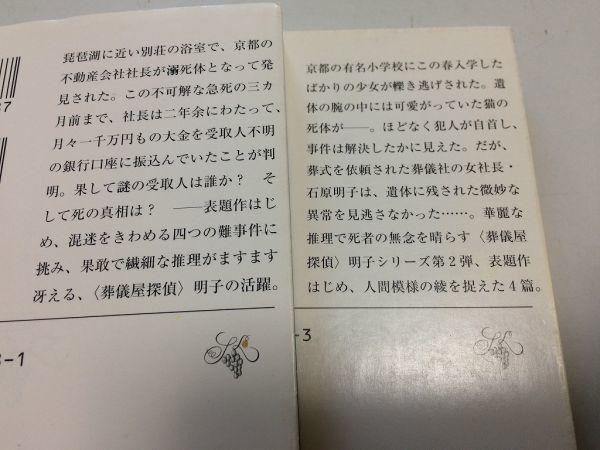 琵琶湖に近い別荘の浴室で、京都の
不動産会社社長が溺死体となって発
見された。この不可解な急死の三ヵ
月前まで、社長は二年余にわたって、
月々一千万円もの大金を受取人不明
の銀行口座に振込んでいたことが判
明。果して謎の受取人は誰か？　そ
して死の真相は？　――表題作はじ
め、混迷をきわめる四つの難事件に
挑み、果敢で繊細な推理がますます
冴える、〈葬儀屋探偵〉明子の活躍。
京都の有名小学校にこの春入学した
ばかりの少女が轢き逃げされた。遺
体の腕の中には可愛がっていた猫の
死体が――。ほどなく犯人が自首し、
事件は解決したかに見えた。だが、
葬式を依頼された葬儀社の女社長・
石原明子は、遺体に残された微妙な
異常を見逃さなかった……。華麗な
推理で死者の無念を晴らす〈葬儀屋
探偵〉明子シリーズ第２弾、表題作
はじめ、人間模様の綾を捉えた４篇。
-1
-3